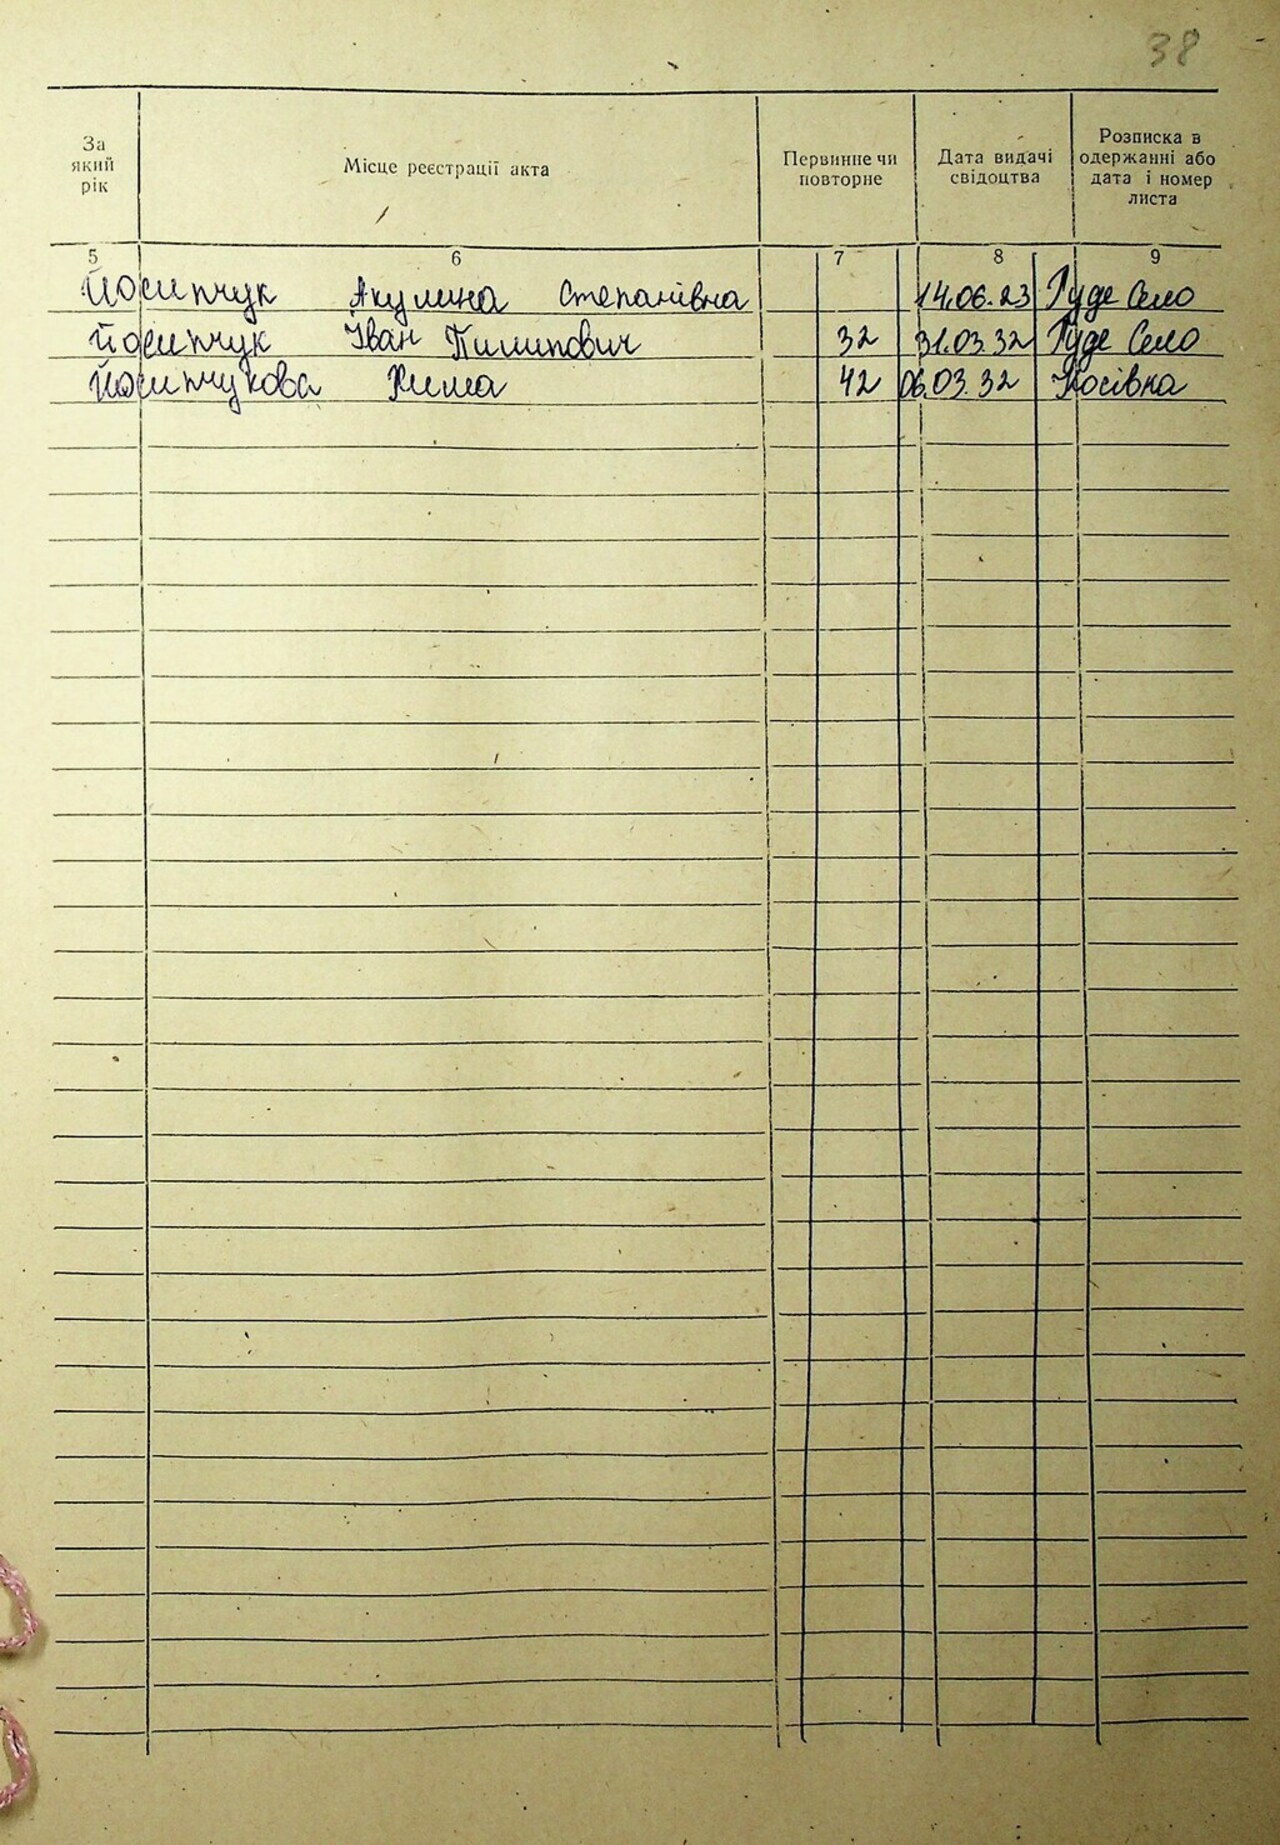 38
За який рік Місце реєстрації акта Первинне чи повторне Дата видачі свідоцтва Розписка в одержанні або дата і номер листа
5 6 7 8 9
Йосипчук Акулина Степанівна 14.06.23 Гуде Село
Йосипчук Іван Пилипович 32 31.03.32 Гуде Село
Йосипчукова 42 06.03.32 Косівка